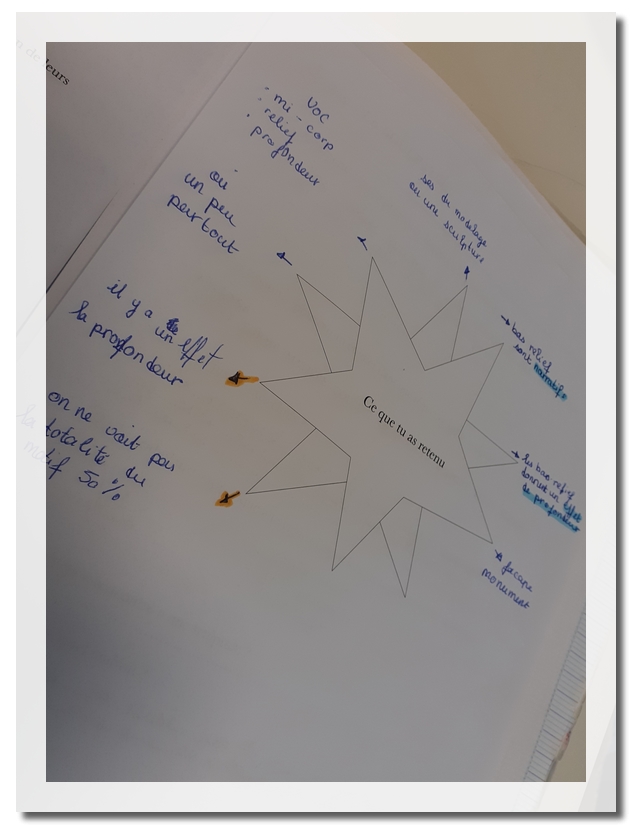 deleurs
VOC
: mi-corp
: relief
· profondeur
où
un peu
partout
ses du modelage
ou une sculpture
il y a un effet
la profondeur
→ bas relief
sont narratifs
Ce que tu as retenu
on ne voit pas
la totalité du
motif 50%
→ les bas relief
donnent un effet
de profondeur
→ façade
monument